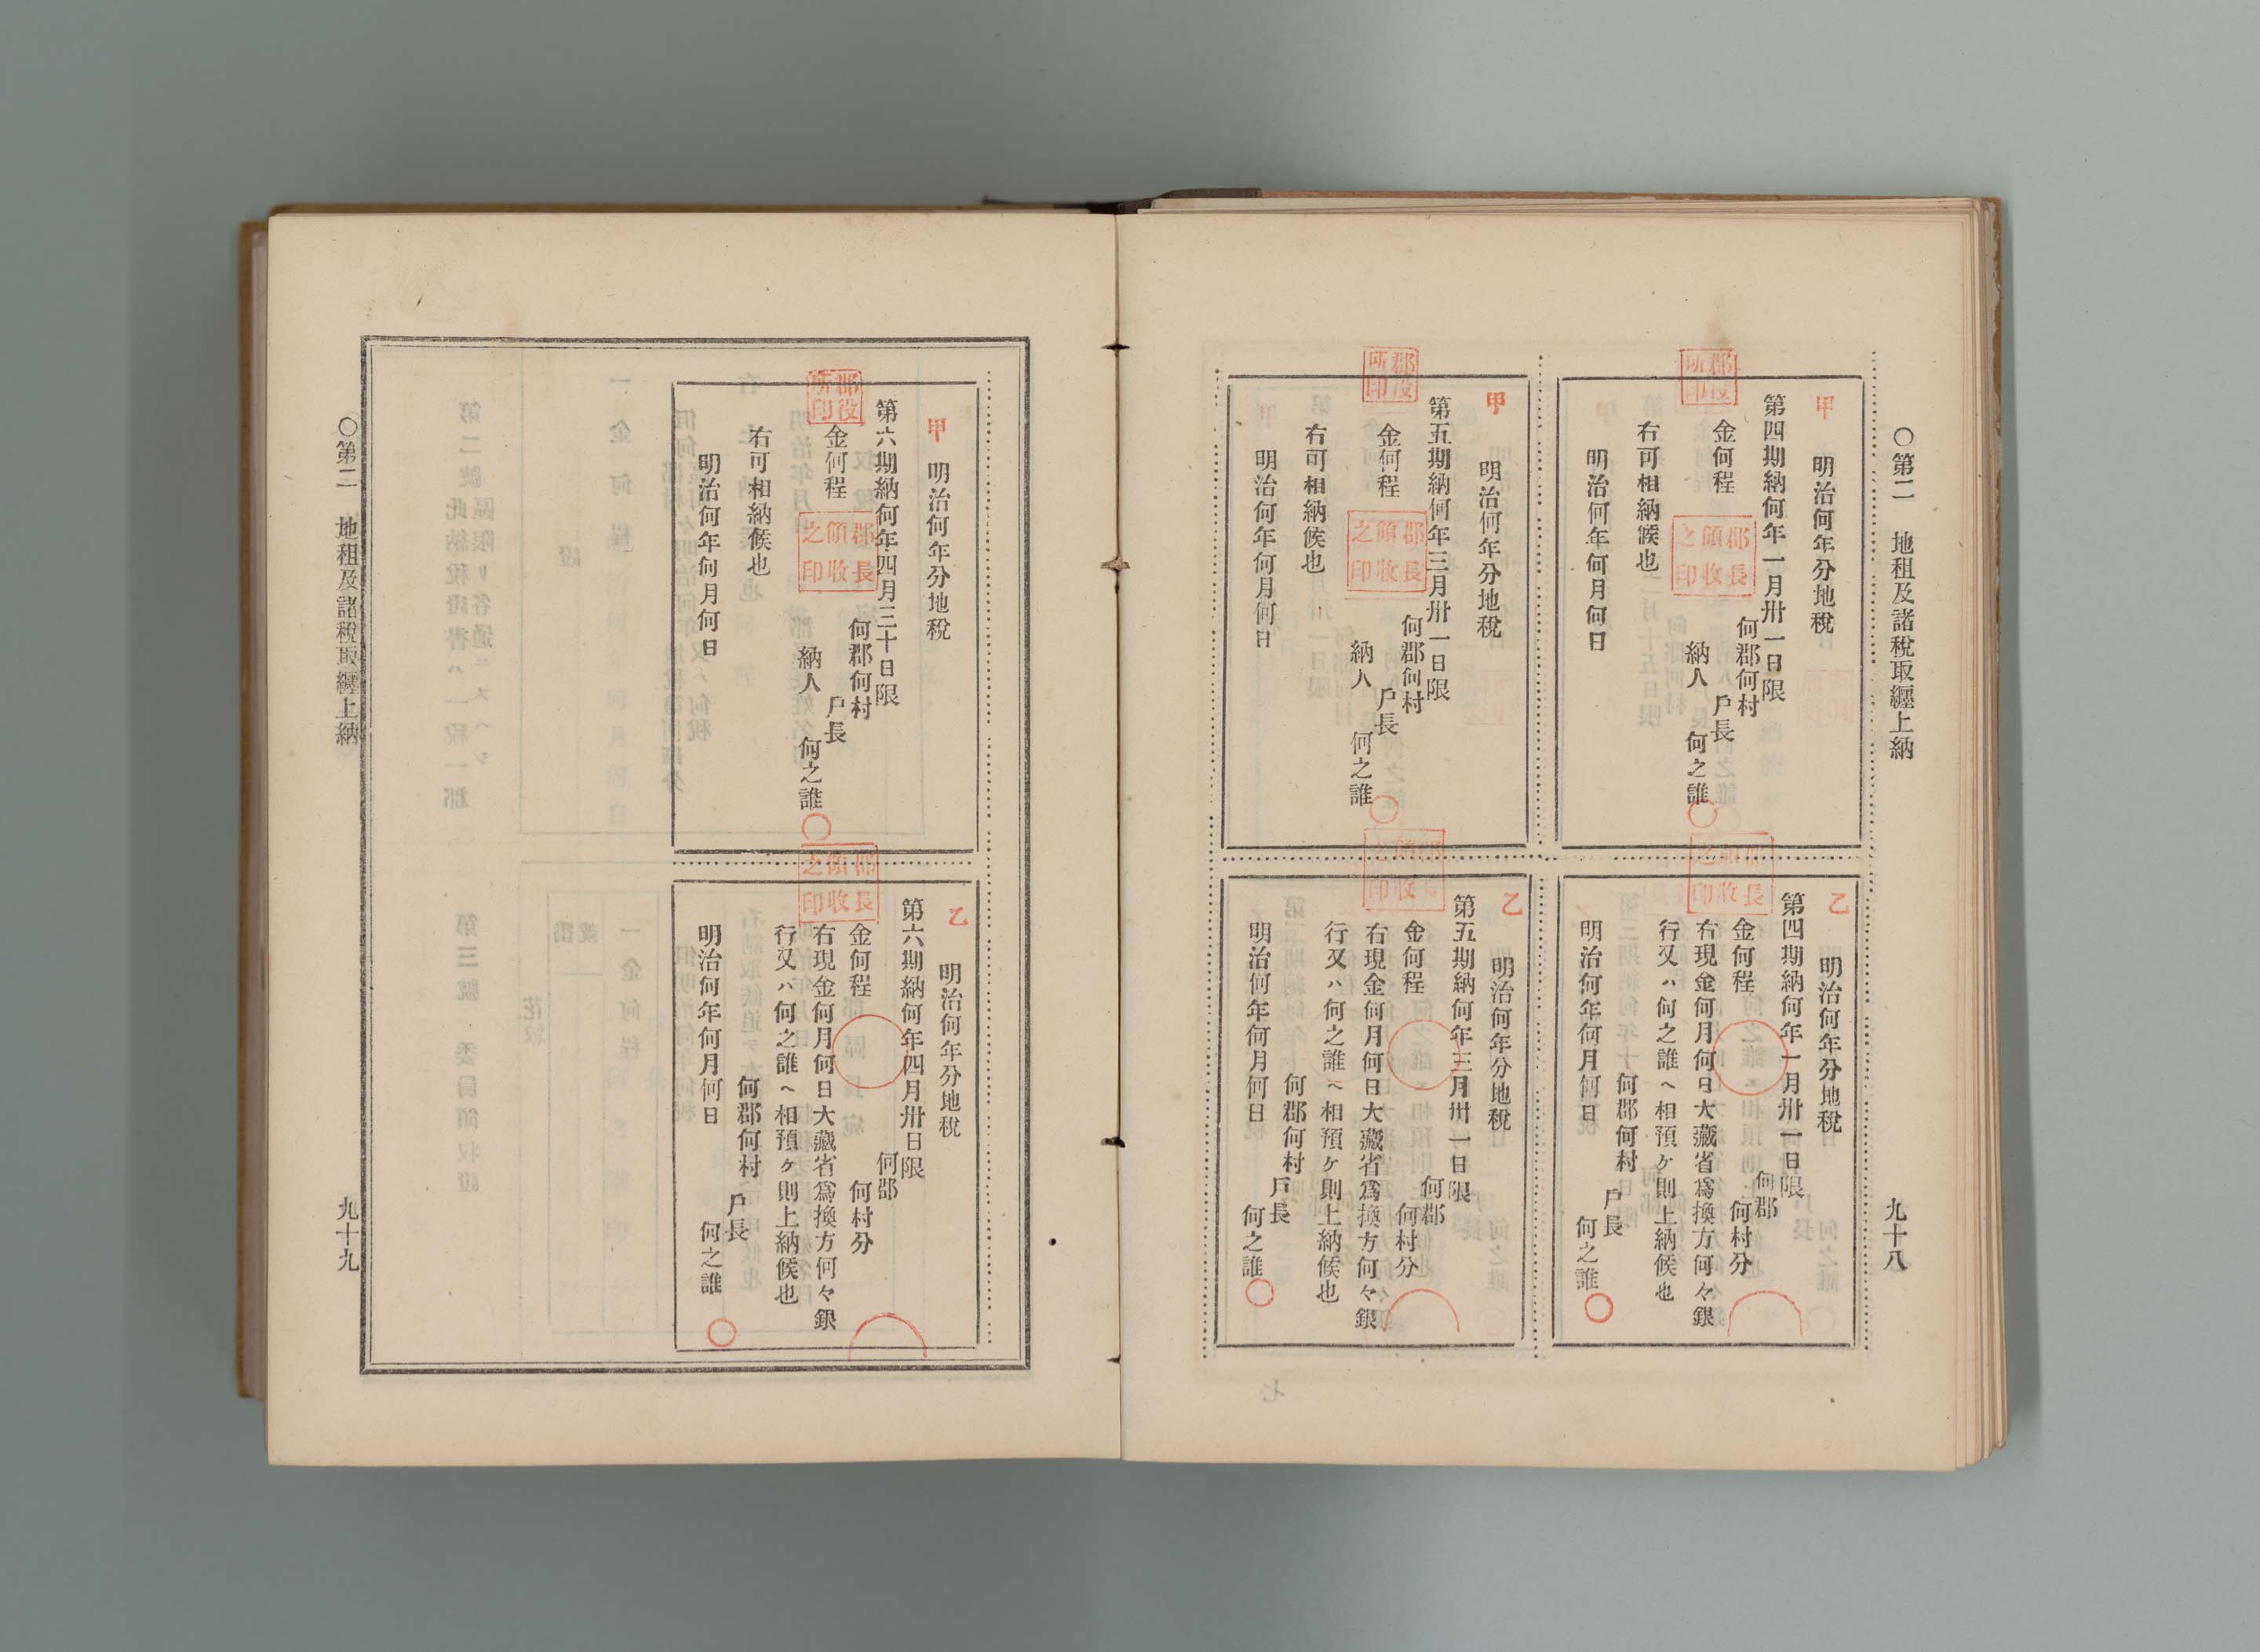 ○第二 地租及諸稅取纒上納
九十八
甲
明治何年分地稅
第四期納何年一月卅一日限
金何程
何郡何村
戶長
納人 何之誰
右可相納候也
明治何年何月何日
郡役所印
郡長領收之印
乙
明治何年分地稅
第四期納何年一月卅一日限
何郡
何村分
金何程
右現金何月何日大藏省爲換方何々銀
行又ハ何之誰ヘ相預ケ則上納候也
何郡何村
戶長
何之誰
明治何年何月何日
郡長領收之印
甲
明治何年分地稅
第五期納何年三月卅一日限
金何程
何郡何村
戶長
納人 何之誰
右可相納候也
明治何年何月何日
郡役所印
郡長領收之印
乙
明治何年分地稅
第五期納何年三月卅一日限
何郡
何村分
金何程
右現金何月何日大藏省爲換方何々銀
行又ハ何之誰ヘ相預ケ則上納候也
何郡何村
戶長
何之誰
明治何年何月何日
郡長領收之印
甲
明治何年分地稅
第六期納何年四月三十日限
金何程
何郡何村
戶長
納人 何之誰
右可相納候也
明治何年何月何日
郡役所印
郡長領收之印
乙
明治何年分地稅
第六期納何年四月卅日限
何郡
何村分
金何程
右現金何月何日大藏省爲換方何々銀
行又ハ何之誰ヘ相預ケ則上納候也
何郡何村
戶長
何之誰
明治何年何月何日
郡長領收之印
○第二 地租及諸稅取纒上納
九十九